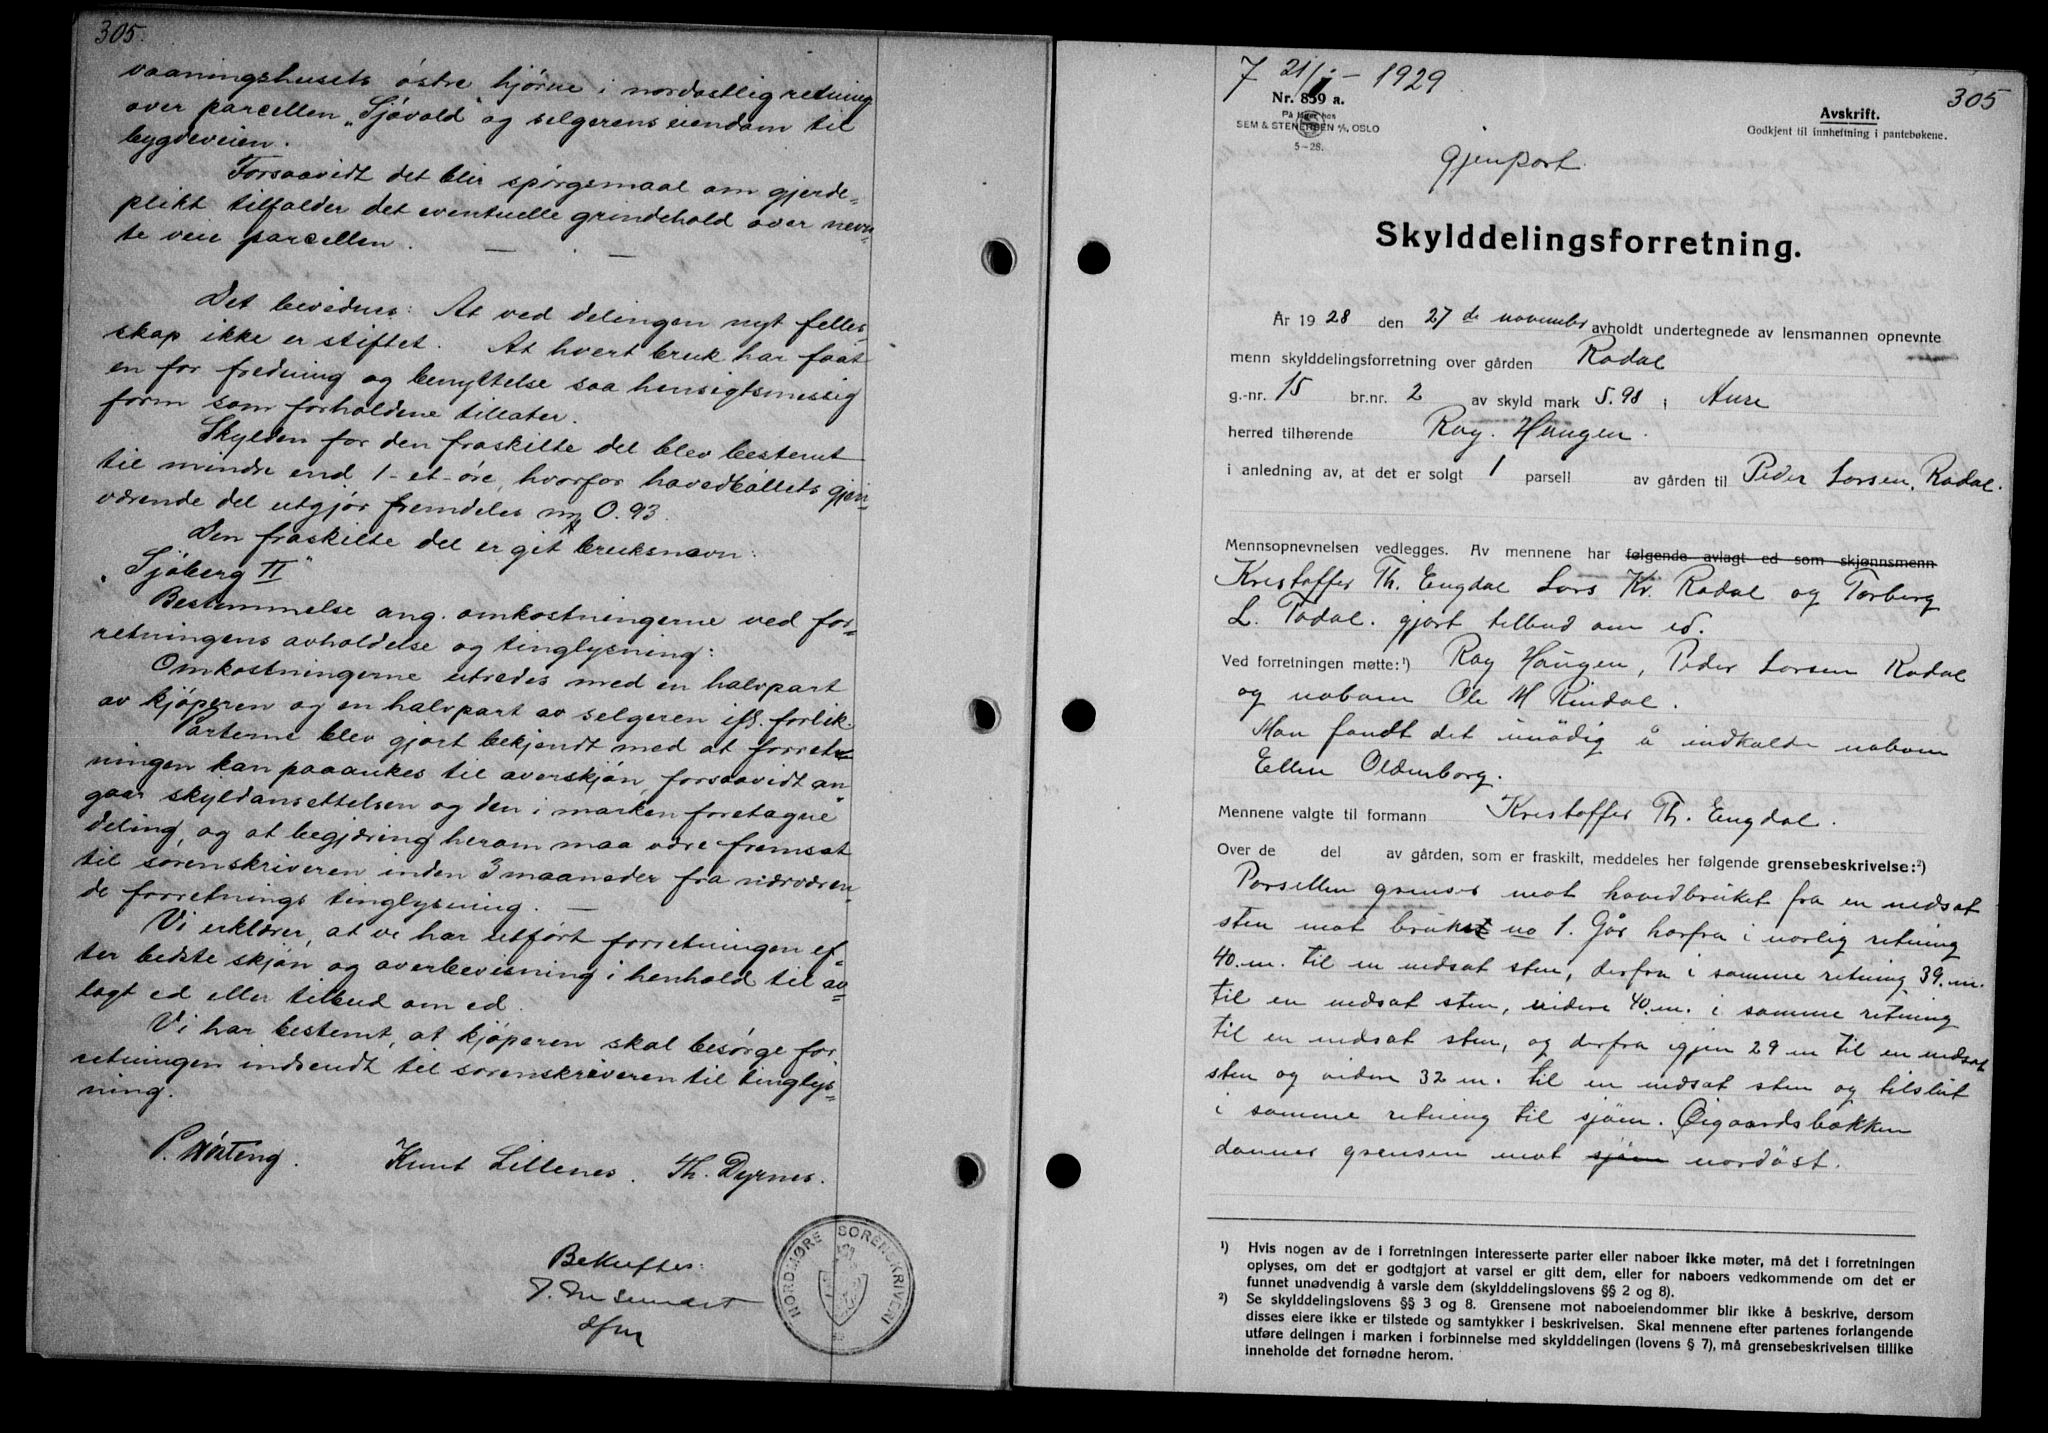 305.
vaaningshusets østre hjørne i nordøstlig retning
over parcellen "Sjøvold" og selgerens eiendom til
bygdeveien.
Forsaavidt det blir spørgsmaal om gjerde-
plikt tilfalder det eventuelle grindehold over nevn-
te veie parcellen.
Det bevidnes: At ved delingen nyt felles-
skap ikke er stiftet. At hvert bruk har faat
en for fredning og benyttelse saa hensigtsmessig
form som forholdene tillater.
Skylden for den fraskilte del blev bestemt
til mindre end 1 - et - øre, hvorfor hovedbøllets gjen-
værende del utgjør fremdeles mk 0.93.
Den fraskilte del er git bruksnavn:
"Sjøberg II"
Bestemmelse ang. omkostningerne ved for-
retningens avholdelse og tinglysning:
Omkostningerne utredes med en halvpart
av kjøperen og en halvpart av selgeren ifl. forlik.
Parterne blev gjort bekjendt med at forret-
ningen kan paaankes til overskjøn, forsaavidt an-
gaar skyldansettelsen og den i marken foretagne
deling, og at begjæring herom maa være fremsat
til sorenskriveren inden 3 maaneder fra nærværen-
de forretnings tinglysning.
Vi erklærer, at vi har utført forretningen ef-
ter bedste skjøn og overbevisning i henhold til av-
lagt ed eller tilbud om ed.
Vi har bestemt, at kjøperen skal besørge for-
retningen indsendt til sorenskriveren til tinglys-
ning.
P. Nørteng. Knut Lillenes. Th. Dyrnes.
Bekreftes:
NORDMØRE SORENSKRIVERI
7 21/1 - 1929
305
Nr. 859 a.
På lager hos
SEM & STENERSEN A/S, OSLO
5-28.
Avskrift.
Godkjent til innheftning i pantebøkene.
Gjenpart.
Skylddelingsforretning.
År 1928 den 27de november avholdt undertegnede av lensmannen opnevnte
menn skylddelingsforretning over gården Rodal
g.-nr. 15 br.nr. 2 av skyld mark 5.98 i Aure
herred tilhørende Roy. Haugen.
i anledning av, at det er solgt 1 parsell av gården til Peder Larsen, Rodal.
Mennsopnevnelsen vedlegges. Av mennene har følgende avlagt ed som skjønnsmenn
Kristoffer Th. Engdal Lars Kr. Rodal og Torberg
L. Todal. gjort tilbud om ed.
Ved forretningen møtte:¹) Roy Haugen, Peder Larsen Rodal
og naboen Ole M Rindal.
Man fandt det unødig å indkalde naboen
Ellen Oldenborg.
Mennene valgte til formann Kristoffer Th. Engdal.
Over de del av gården, som er fraskilt, meddeles her følgende grensebeskrivelse:²)
Parsellen grenser mot hovedbruket fra en nedsat
sten mot bruket no 1. Går herfra i norlig retning
40.m. til en nedsat sten, derfra i samme retning 39.m.
til en nedsat sten, videre 40.m. i samme retning
til en nedsat sten, og derfra igjen 29 m til en nedsat
sten og viden 32 m. til en nedsat sten og tilslut
i samme retning til sjøen. Øigaardsbækken
danner grensen mot sjøen nordøst.
¹) Hvis nogen av de i forretningen interesserte parter eller naboer ikke møter, må det i forretningen
oplyses, om det er godtgjort at varsel er gitt dem, eller for naboers vedkommende om det er
funnet unødvendig å varsle dem (skylddelingslovens §§ 2 og 8).
²) Se skylddelingslovens §§ 3 og 8. Grensene mot naboeiendommer blir ikke å beskrive, dersom
disses eiere ikke er tilstede og samtykker i beskrivelsen. Skal mennene efter partenes forlangende
utføre delingen i marken i forbinnelse med skylddelingen (lovens § 7), må grensebeskrivelsen tillike
inneholde det fornødne herom.